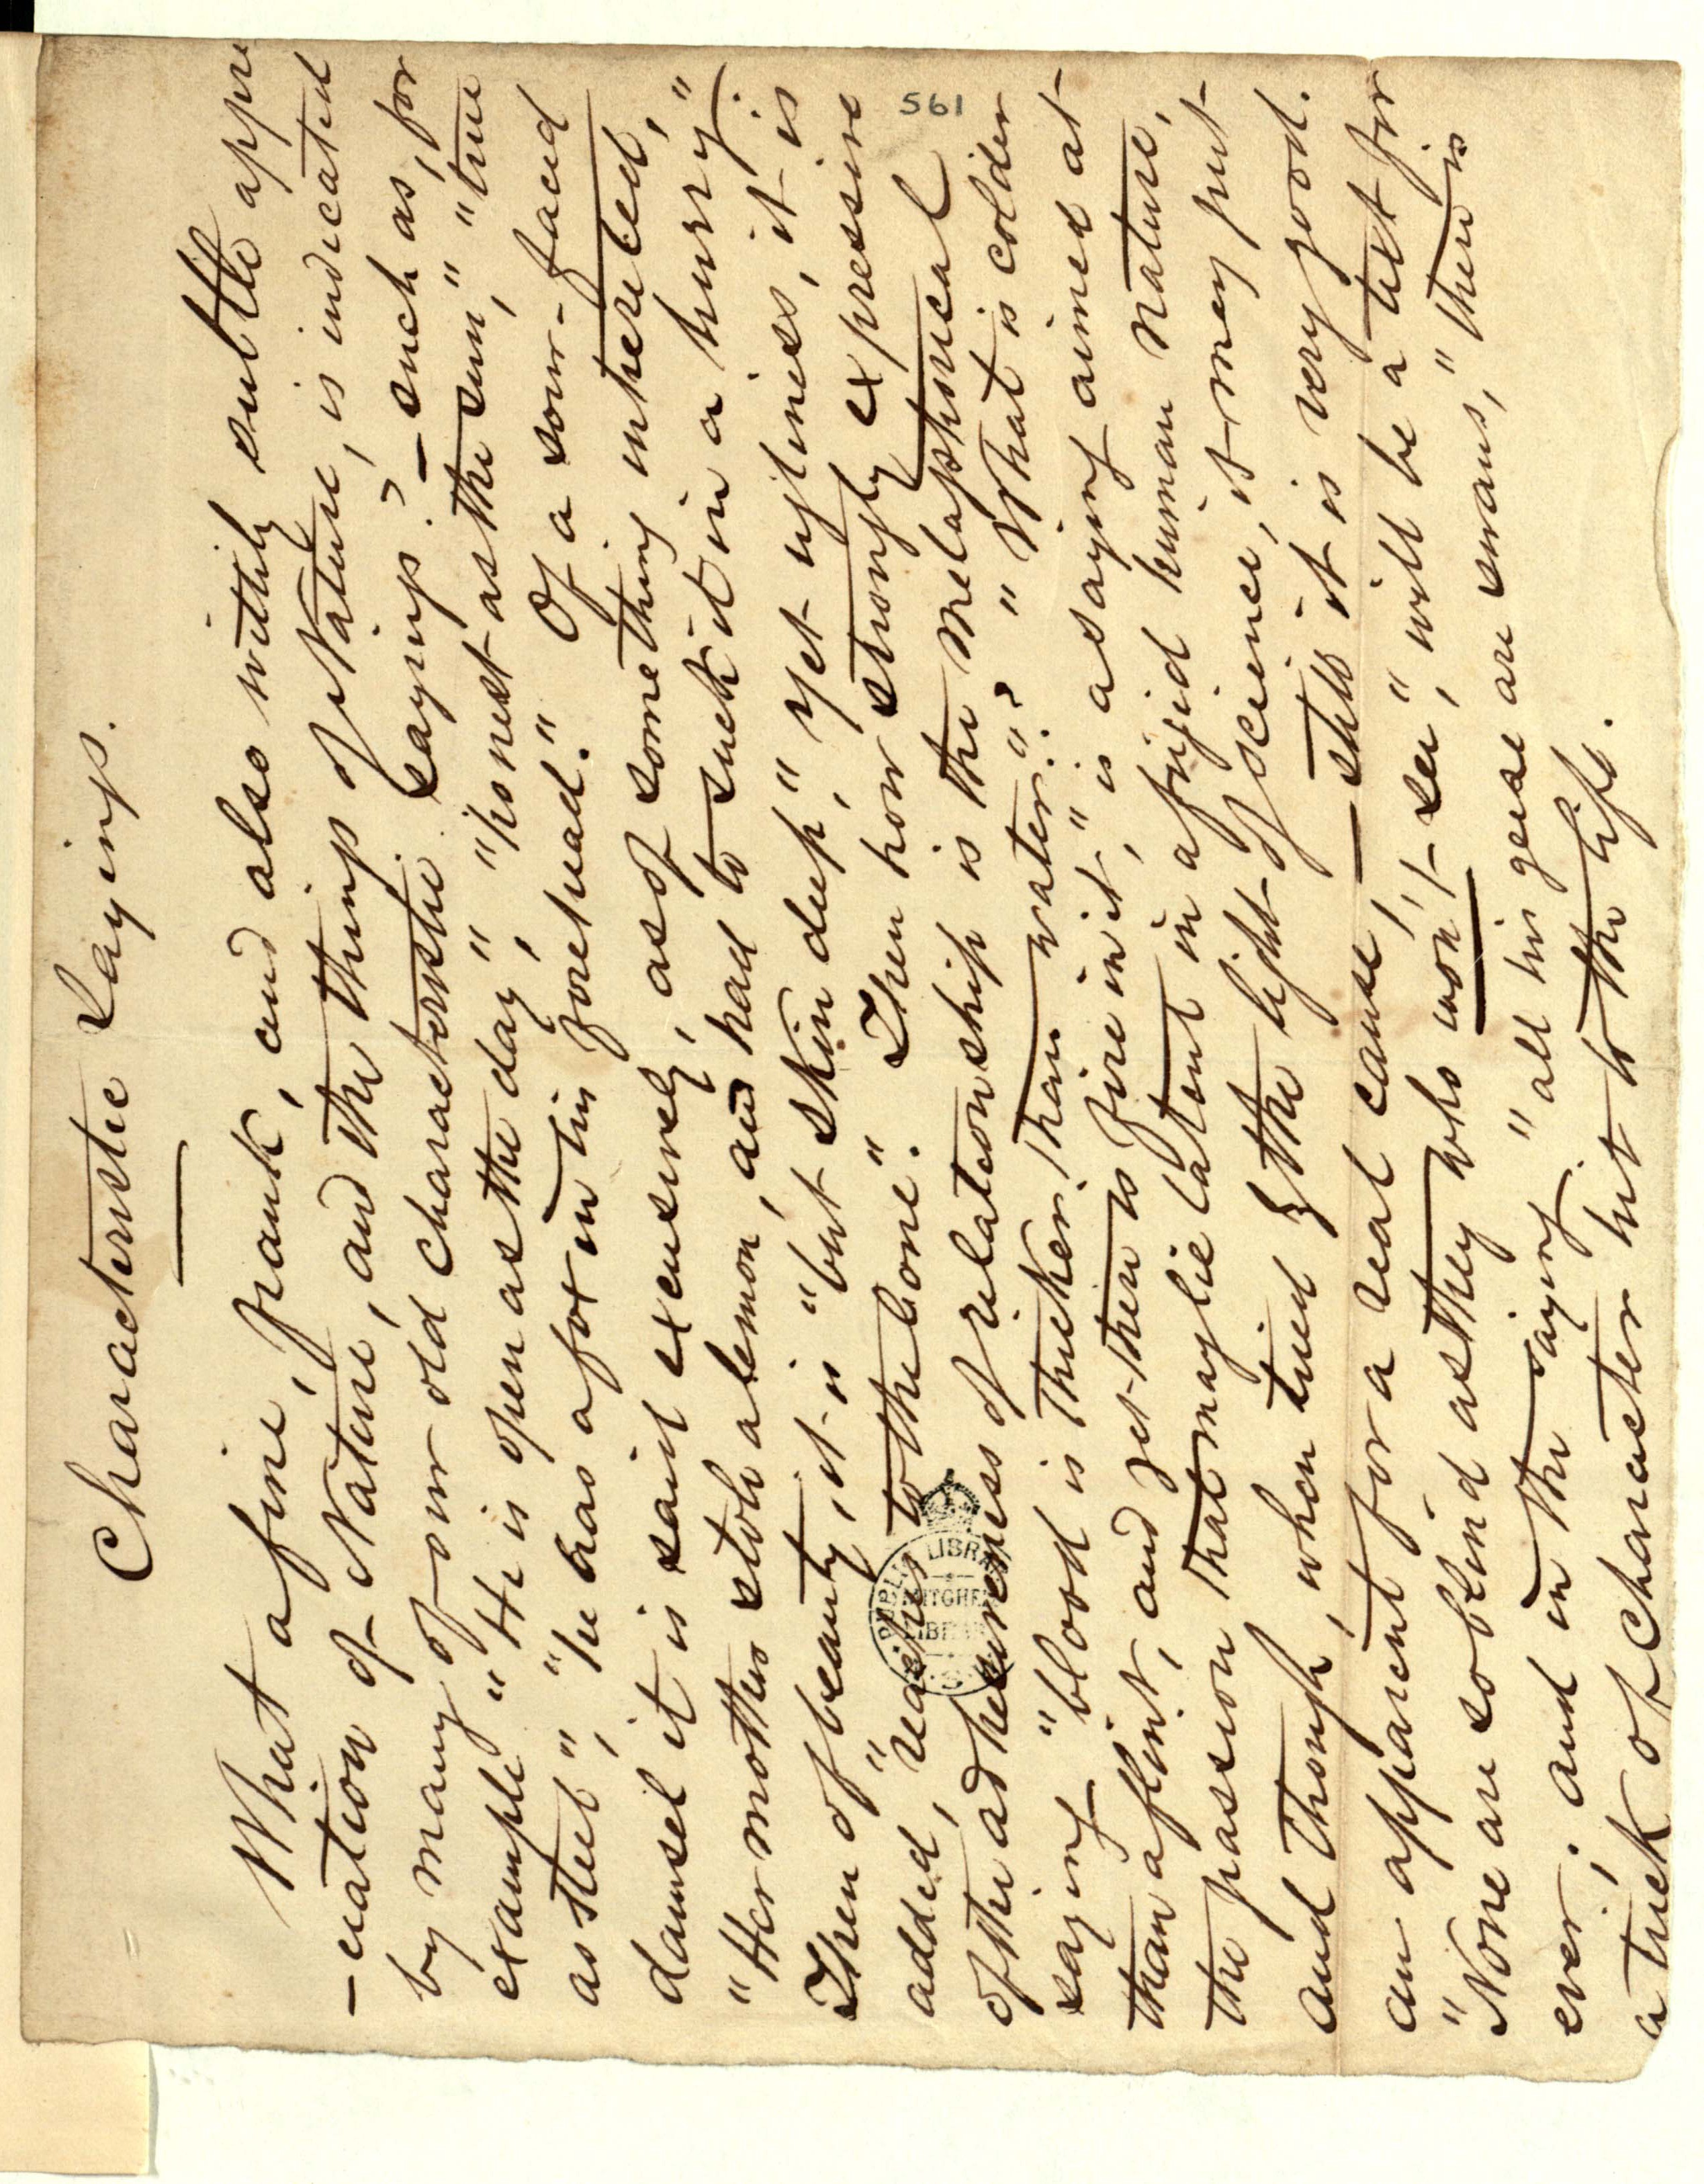 Characteristic Sayings.
What a fine, frank, and also wittily subtle appre
-ciation of Nature, and the things of Nature, is indicated
by many of our old characteristic sayings? — such as, for
example "He is open as the day," "honest as the sun," "true
as steel", "he has a fox in his forehead." Of a sour-faced
damsel it is said excusively, as of something inherited,
"Her mother stole a lemon, and had to suck it in a hurry."
Then of beauty, it is "but skin deep," yet ugliness, it is
added, "reaches to the bone". Then how strongly expressive
of the adhesiveness of relationship is the metaphorical
saying "blood is thicker than water."? "What is colder
than a flint, and yet there is fire in it," is a saying aimed at
the passion that may lie latent in a frigid human nature,
and though, when tried by the light of science, it may put
an apparent for a real cause, — still it is very good.
"None are so blind as they who won't see," will be a text for
ever; and in the saying "all his geese are swans," there is
a trick of character hit to the life.
561
PUBLIC LIBRARY
MITCHELL
LIBRARY